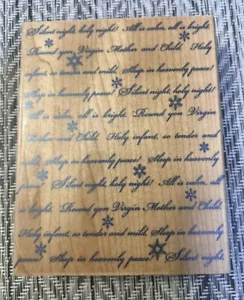 Silent night, holy night! All is calm, all is bright.
Round yon Virgin Mother and Child. Holy
infant, so tender and mild. Sleep in heavenly peace!
Sleep in heavenly peace! Silent night, holy night!
All is calm, All is bright. Round yon Virgin
Mother and Child. Holy infant, so tender and
mild. Sleep in heavenly peace! Sleep in heavenly
peace! Silent night, holy night! All is calm, all
is bright. Round yon Virgin Mother and Child.
Holy infant, so tender and mild. Sleep in heavenly
peace! Sleep in heavenly peace! Silent night,